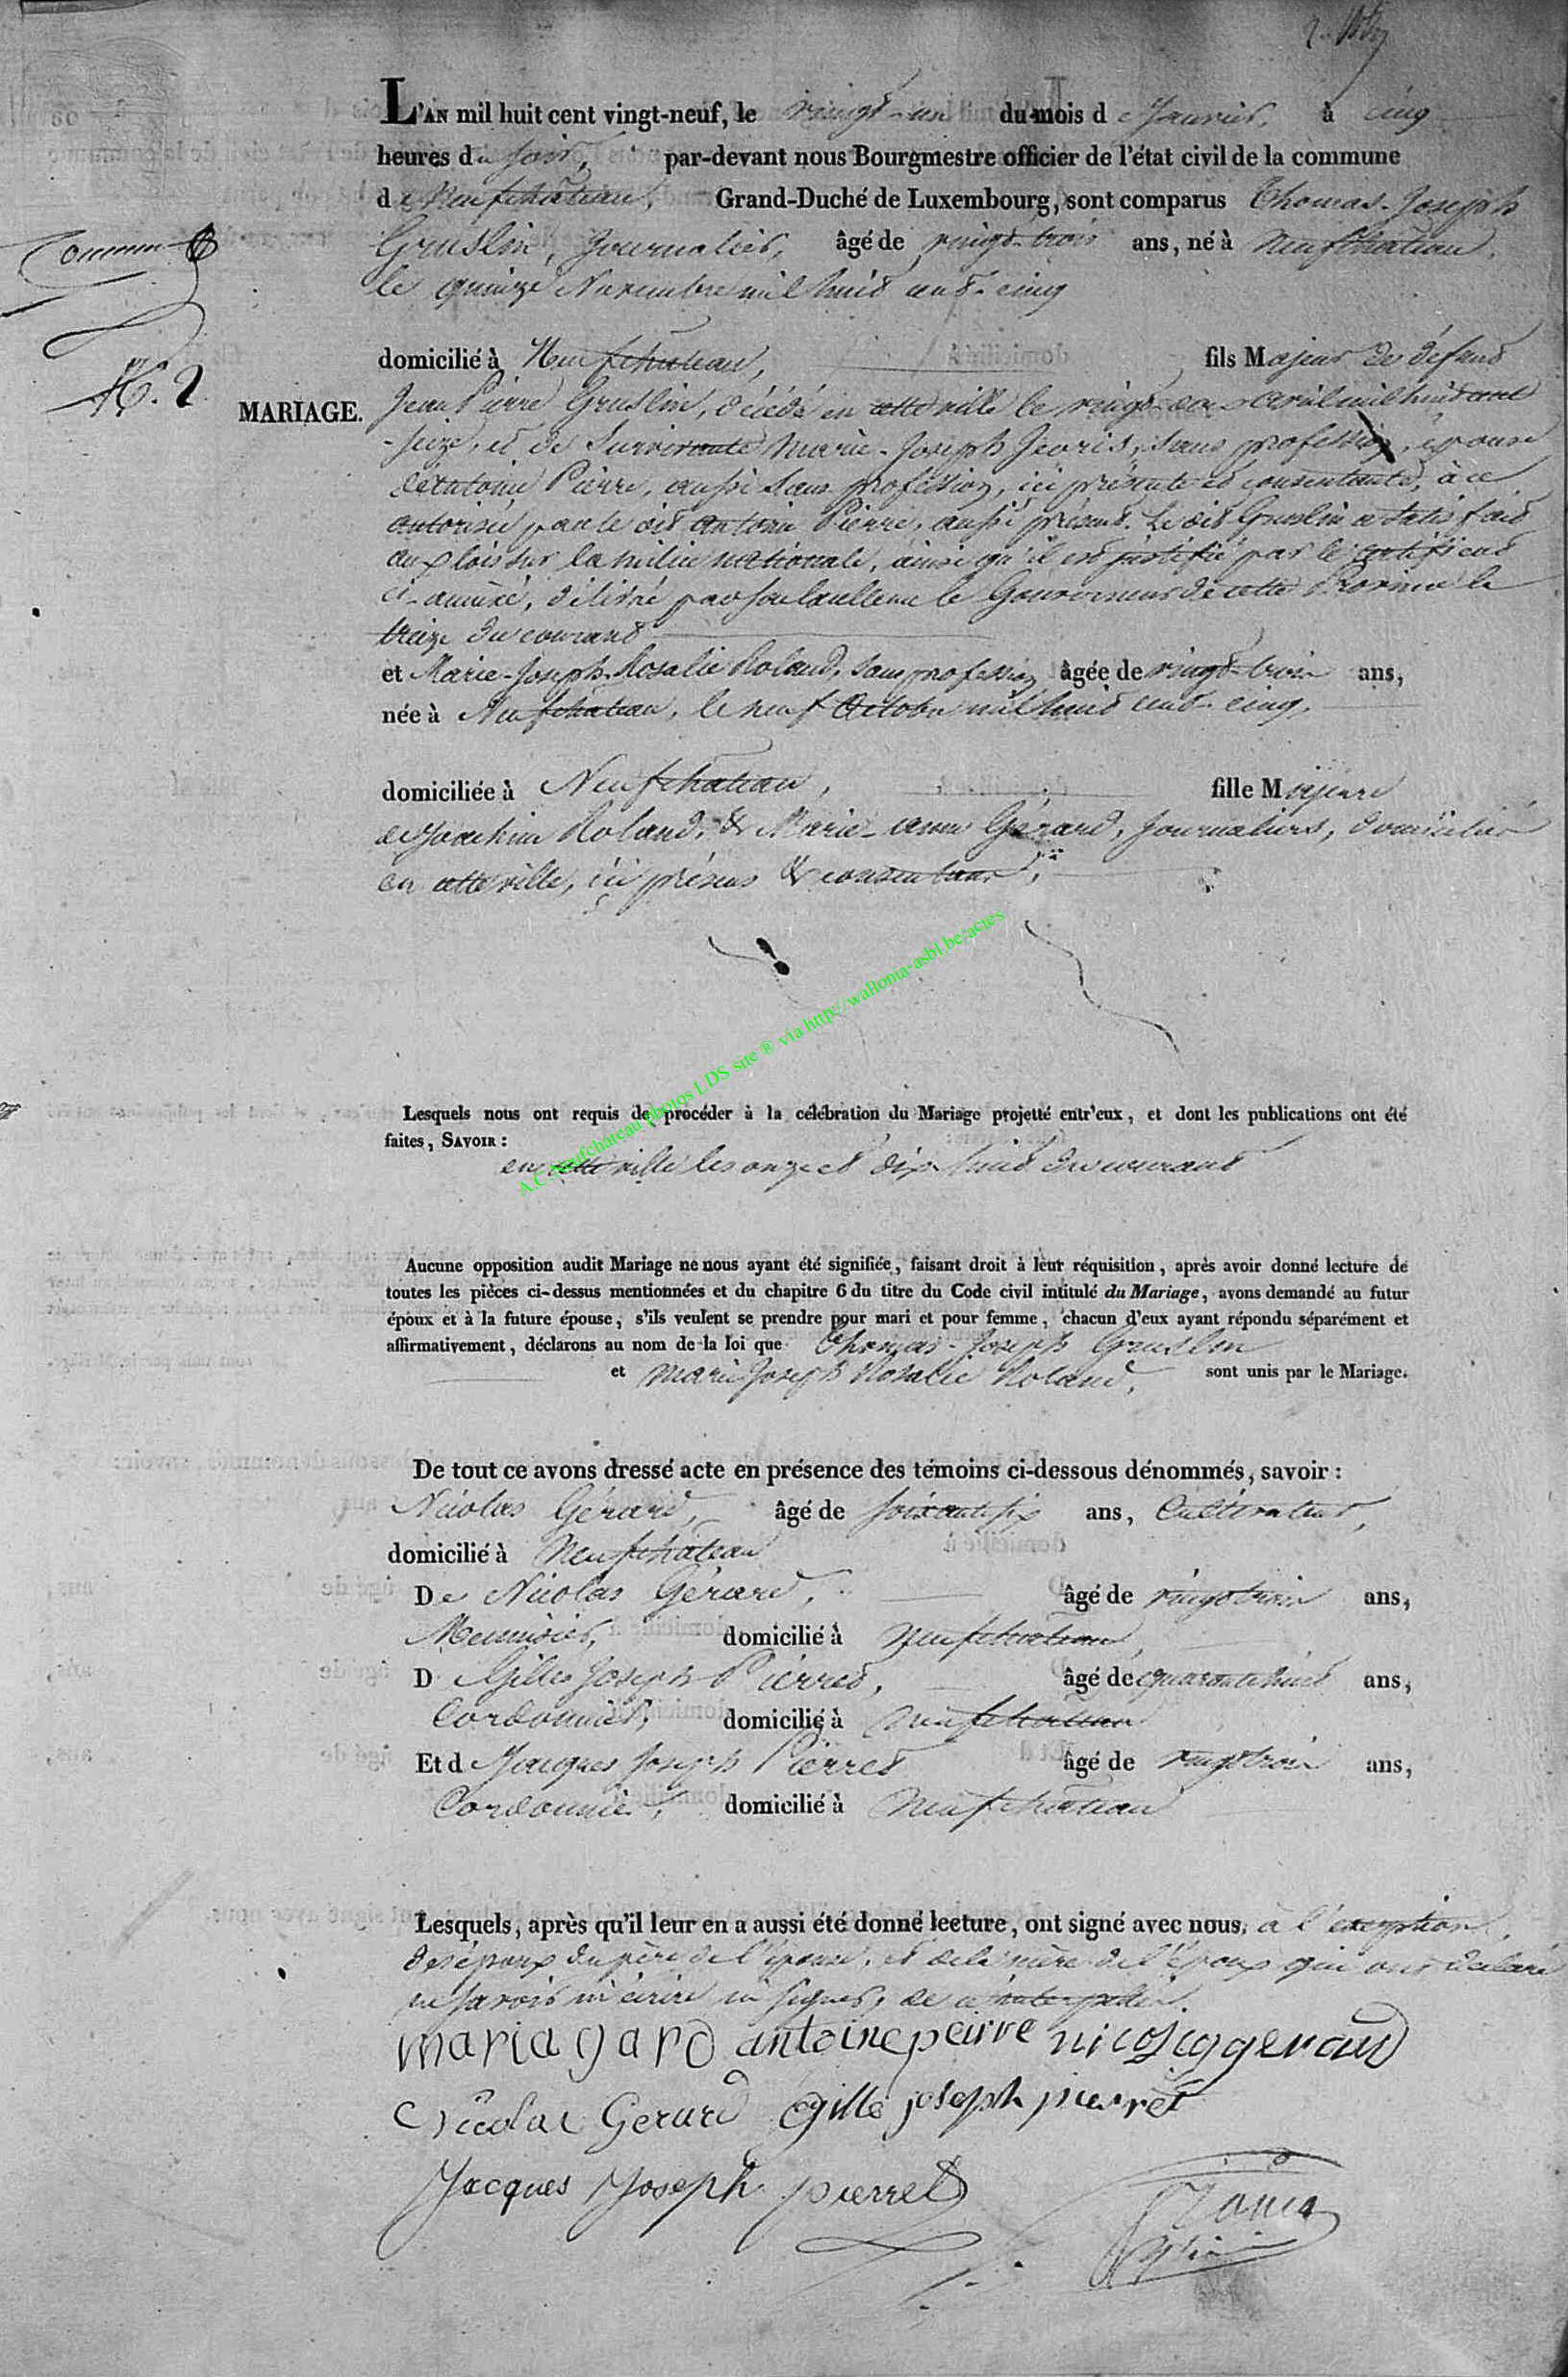 L'AN mil huit cent vingt-neuf, le vingt-un du mois de Janvier, à cinq
heures du soir, par-devant nous Bourgmestre officier de l'état civil de la commune
de Neufchateau, Grand-Duché de Luxembourg, sont comparus Thomas-Joseph
Gruslin, Journalier, âgé de vingt-trois ans, né à Neufchateau,
le quinze Novembre mil huit cent-cinq
domicilié à Neufchateau, fils Majeur de défunt
N. 2
MARIAGE.
Jean Pierre Gruslin, décédé en cette ville le vingt-deux avril mil huit cent
seize, et de Survivante Marie-Joseph Jeoris, sans profession, épouse
d'Antoine Pierre, aussi sans profession, ici présente et consentante, à ce
autorisée par le dit Antoine Pierre, aussi présent. Le dit Gruslin a satisfait
aux lois sur la milice nationale, ainsi qu'il est justifié par le certificat
ci-annexé, délivré par Son Excellence le Gouverneur de cette Province le
treize du courant
et Marie-Joseph-Rosalie Roland, sans profession âgée de vingt-trois ans,
née à Neufchateau, le neuf Octobre mil huit cent-cinq,
domiciliée à Neufchateau, fille Majeure
de Joachim Roland, & Marie-anne Gérard, Journaliers, domiciliés
en cette ville, ici présens & consentans,
A.C. Neufchâteau photos LDS site ® via http://wallonia-asbl.be/actes
Lesquels nous ont requis de procéder à la célébration du Mariage projetté entr'eux, et dont les publications ont été
faites, SAVOIR :
en cette ville les onze et dix-huit du courant
Aucune opposition audit Mariage ne nous ayant été signifiée, faisant droit à leur réquisition, après avoir donné lecture de
toutes les pièces ci-dessus mentionnées et du chapitre 6 du titre du Code civil intitulé du Mariage, avons demandé au futur
époux et à la future épouse, s'ils veulent se prendre pour mari et pour femme, chacun d'eux ayant répondu séparément et
affirmativement, déclarons au nom de la loi que Thomas-Joseph Gruslin
et Marie Joseph Rosalie Roland, sont unis par le Mariage.
De tout ce avons dressé acte en présence des témoins ci-dessous dénommés, savoir :
Nicolas Gérard, âgé de soixante six ans, Cultivateur,
domicilié à Neufchateau
De Nicolas Gérard, âgé de vingt trois ans,
Meunier, domicilié à Neufchateau,
D Gilles Joseph Pierret, âgé de quarante huit ans,
Cordonnier, domicilié à Neufchateau
Et d Jacques Joseph Pierret âgé de vingt trois ans,
Cordonnier, domicilié à Neufchateau
Lesquels, après qu'il leur en a aussi été donné lecture, ont signé avec nous, à l'exception
des époux du père de l'épouse, et de la mère de l'époux qui ont déclaré
ne savoir ni écrire ni signer, de ce interpellés.
maria garo antoine peirre nicolas gerard
Nicolas Gerard Gille joseph pierret
Jacques Joseph pierret